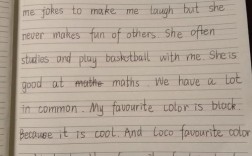 me jokes to make me laugh but she
never makes fun of others. She often
studies and play basketball with me. She is
good at maths. We have a lot
in common. My favourite color is black.
Because it is cool. And Loco favourite color